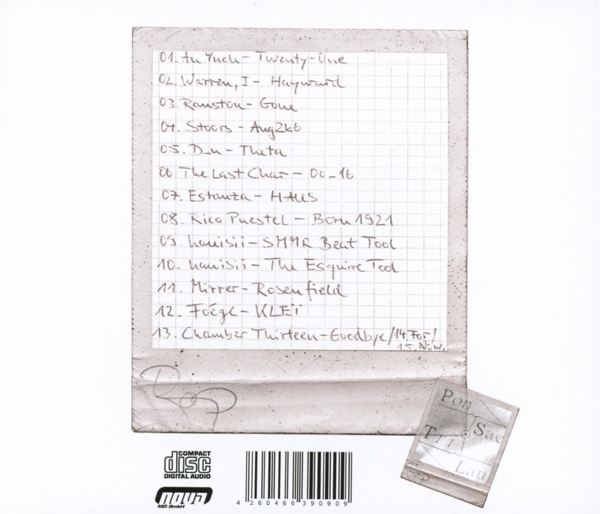 01. An Ynch - Twenty-One
02. Warren, I - Hayward
03. Ranston - Gone
04. Stoors - Aug2k6
05. D_n - Theta
06. The Last Char - Oo_16
07. Estanza - HAUS
08. Rico Puestel - Born 1921
09. hanisii - SMMR Beat Tool
10. hanisii - The Esquire Tool
11. Mirrer - Rosenfield
12. Foégc - KLEÏ
13. Chamber Thirteen - Goodbye / 14. For /
15. Now.
Pon
Sac
Tri
Lau
COMPACT
disc
DIGITAL AUDIO
nova
MD GmbH
4 260466 390909